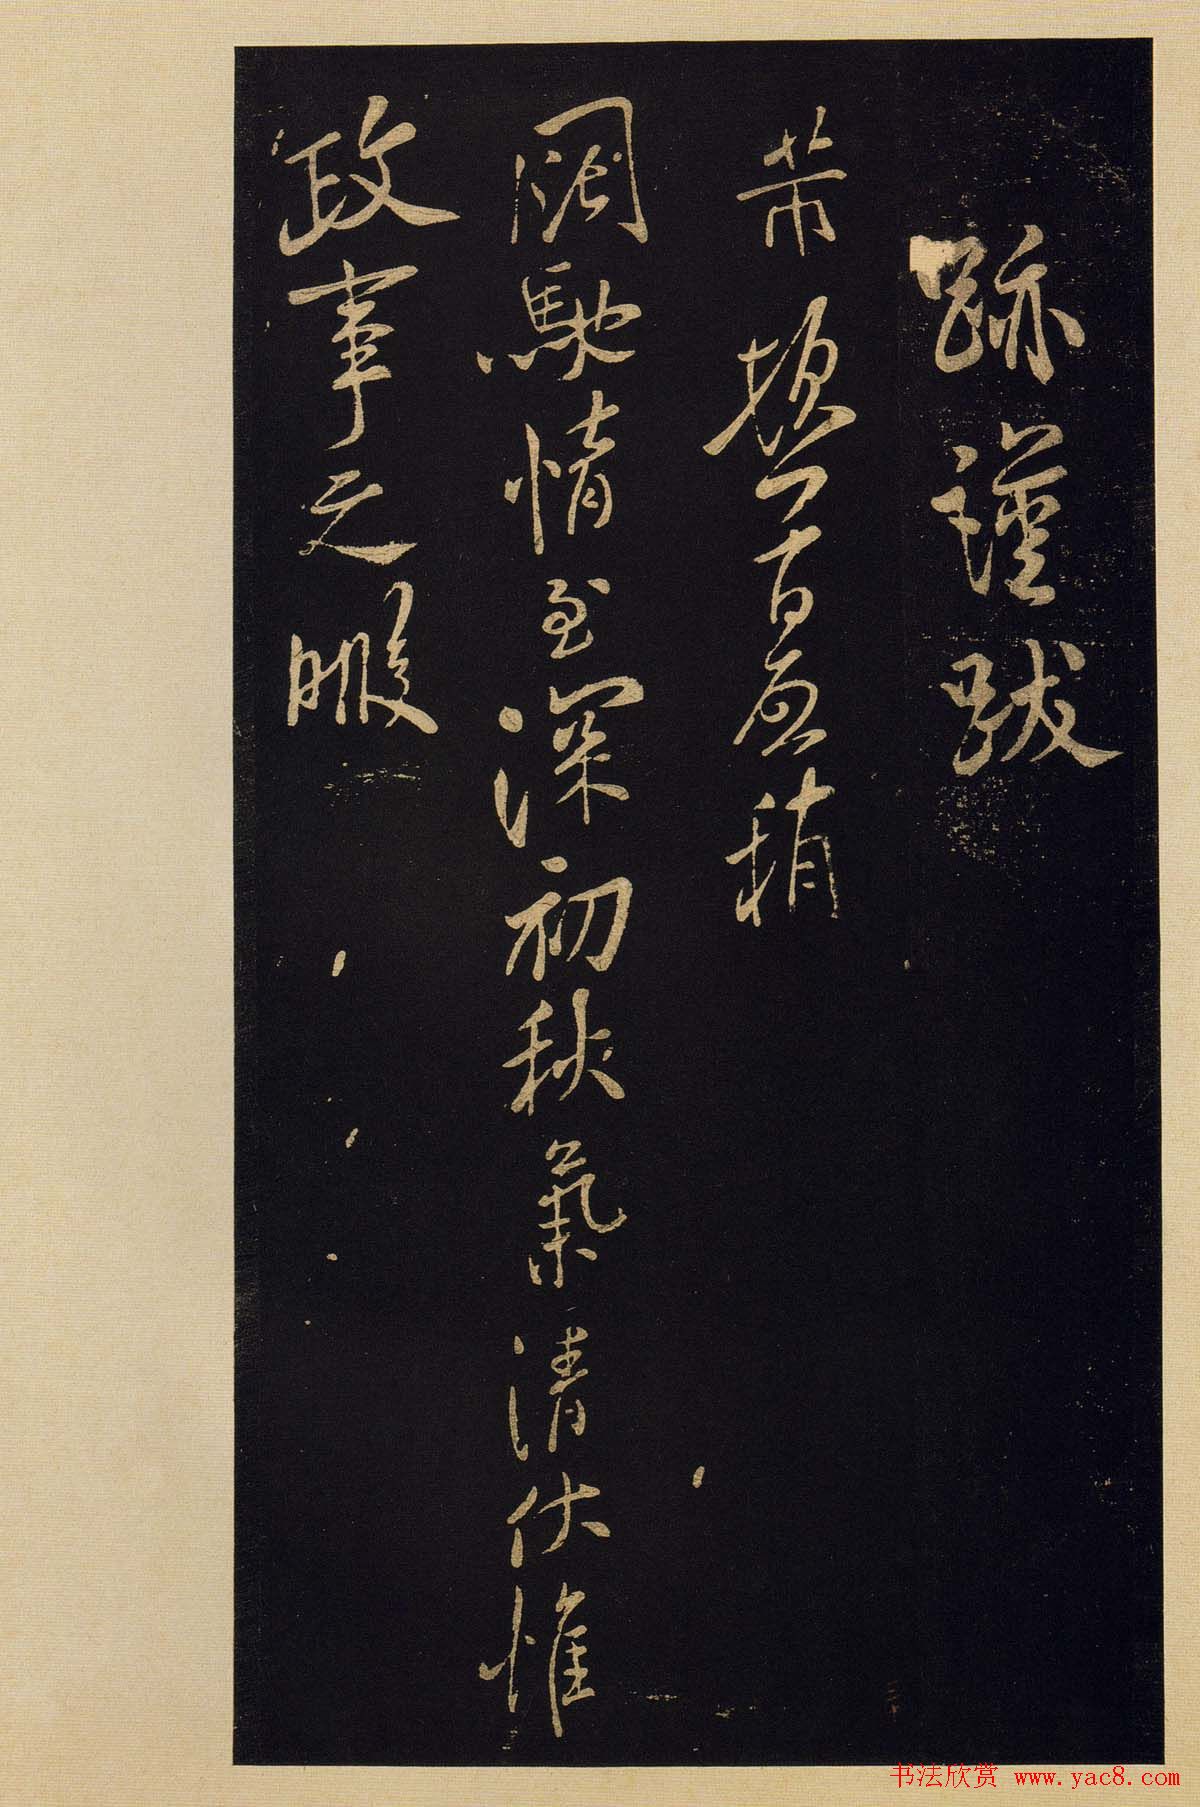 跡謹跋
芾頓首再啓稍
闊馳情至深初秋氣清伏惟
政事之暇
书法欣赏 www.yac8.com